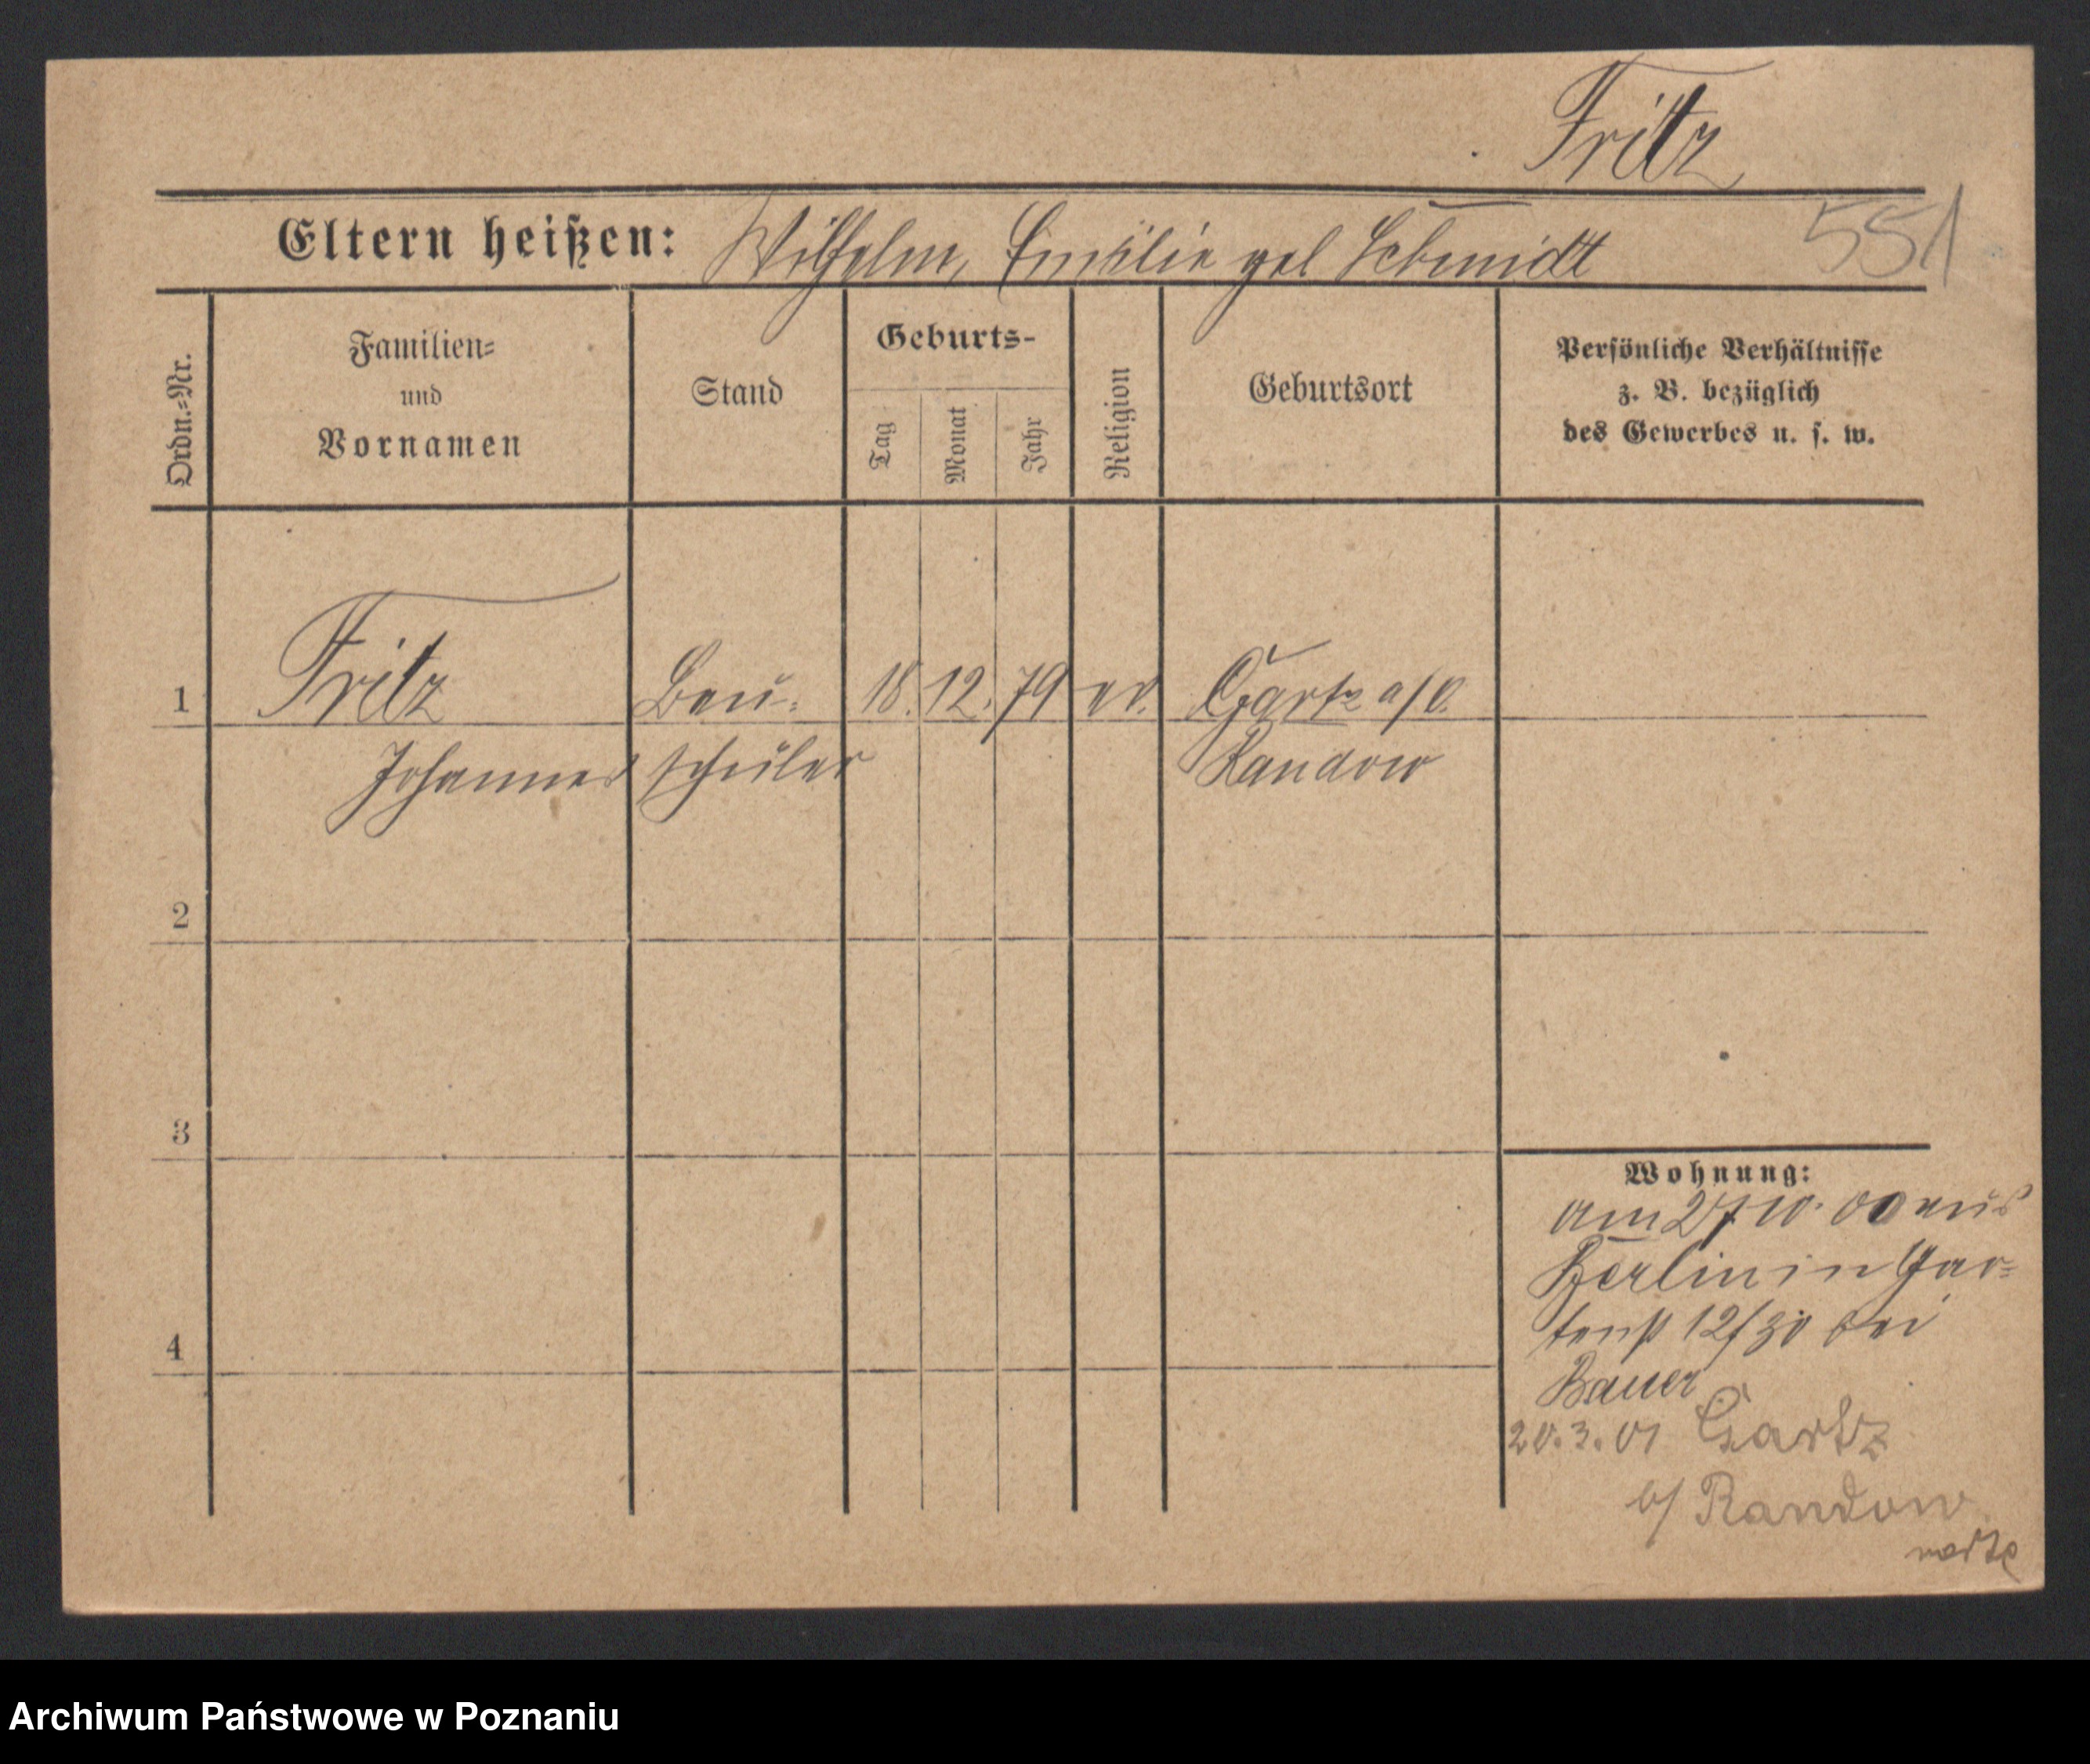 Fritz
Eltern heißen: Wilhelm, Emilie geb Schmidt 551
Ordn.=Nr.
Familien=
und
Vornamen
Stand
Geburts-
Tag
Monat
Jahr
Religion
Geburtsort
Persönliche Verhältnisse
z. B. bezüglich
des Gewerbes u. s. w.
1 Fritz Bau- 18. 12. 79 ev. Gartz a/O.
Johannes schüler Randow
2
3
4
Wohnung:
am 27 10. 00 aus
Berlin in Gar=
tenst 12/30 bei
Bauer
20.3.01 Gartz
b/ Randow
Archiwum Państwowe w Poznaniu